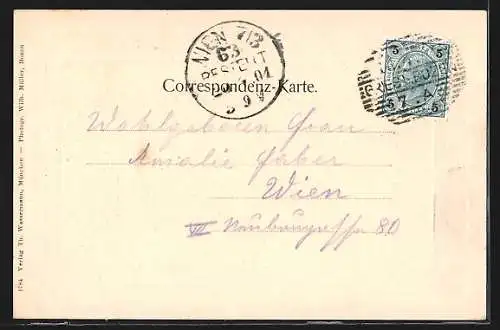 WIEN 7/3
63
BESTELLT
04
9
5 5
57.4
5 5
Correspondenz-Karte.
Wohlgeboren Frau
Amalie Faber
Wien
VII Neubaugasse 80
1784 Verlag Th. Wassermann, München — Photogr. Wilh. Müller, Bozen